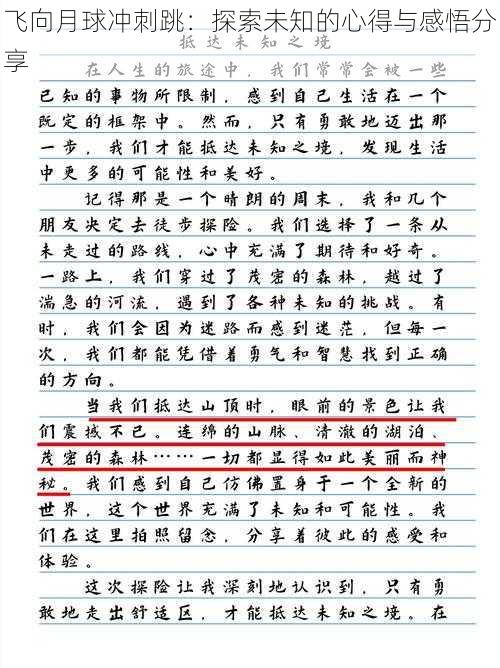 飞向月球冲刺跳：探索未知的心得与感悟分享
抵达未知之境
在人生的旅途中，我们常常会被一些
已知的事物所限制，感到自己生活在一个
既定的框架中。然而，只有勇敢地迈出那
一步，我们才能抵达未知之境，发现生活
中更多的可能性和美好。
记得那是一个晴朗的周末，我和几个
朋友决定去徒步探险。我们选择了一条从
未走过的路线，心中充满了期待和好奇。
一路上，我们穿过了茂密的森林，越过了
湍急的河流，遇到了各种未知的挑战。有
时，我们会因为迷路而感到迷茫，但每一
次，我们都能凭借着勇气和智慧找到正确
的方向。
当我们抵达山顶时，眼前的景色让我
们震撼不已。连绵的山脉、清澈的湖泊、
茂密的森林……一切都显得如此美丽而神
秘。我们感到自己仿佛置身于一个全新的
世界，这个世界充满了未知和可能性。我
们在这里拍照留念，分享着彼此的感受和
体验。
这次探险让我深刻地认识到，只有勇
敢地走出舒适区，才能抵达未知之境。在